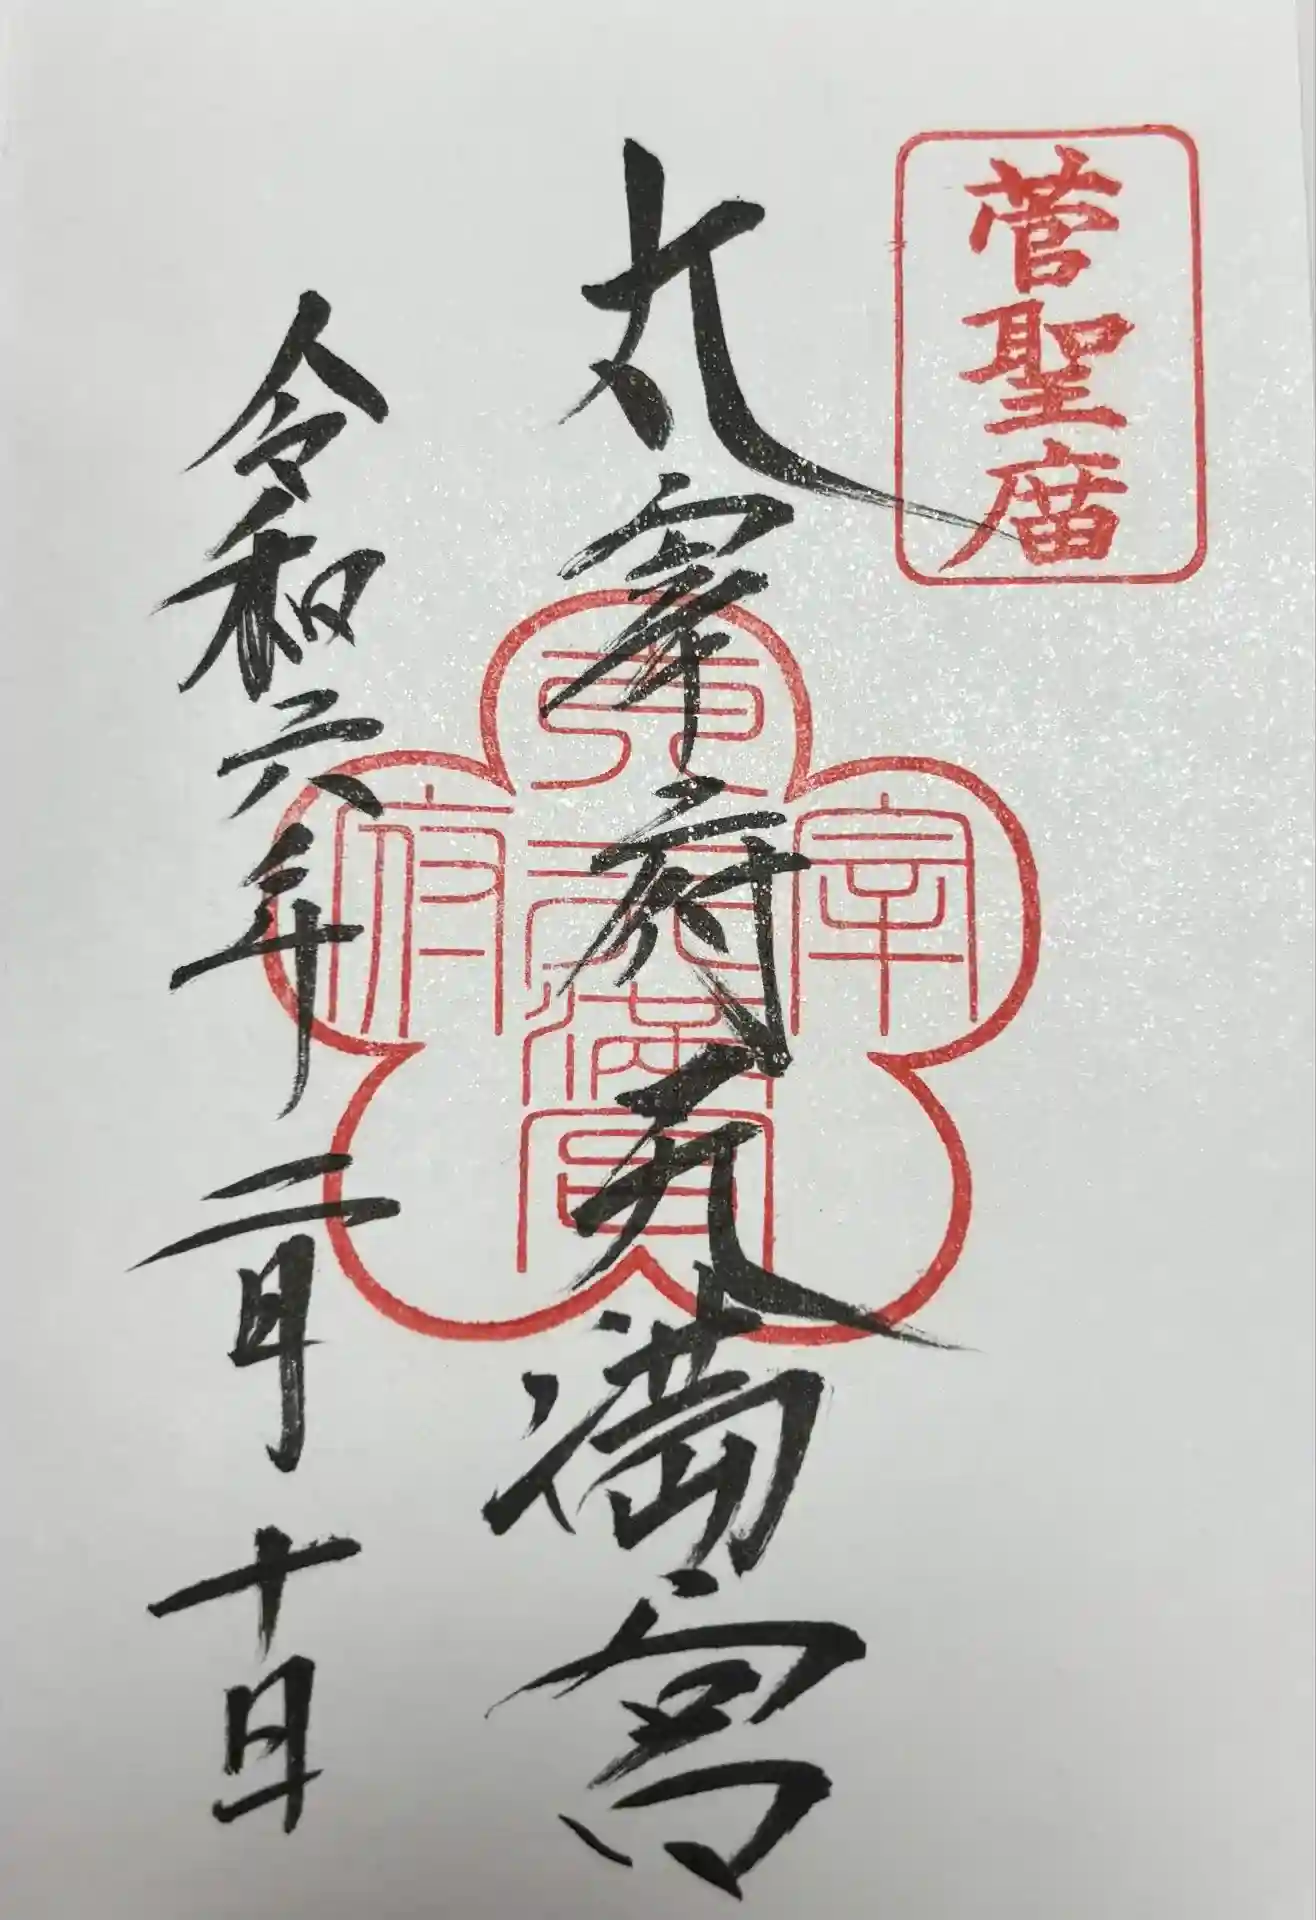 菅聖庿
太宰府天満宮
宰
府
天満宮
令和六年二月十日